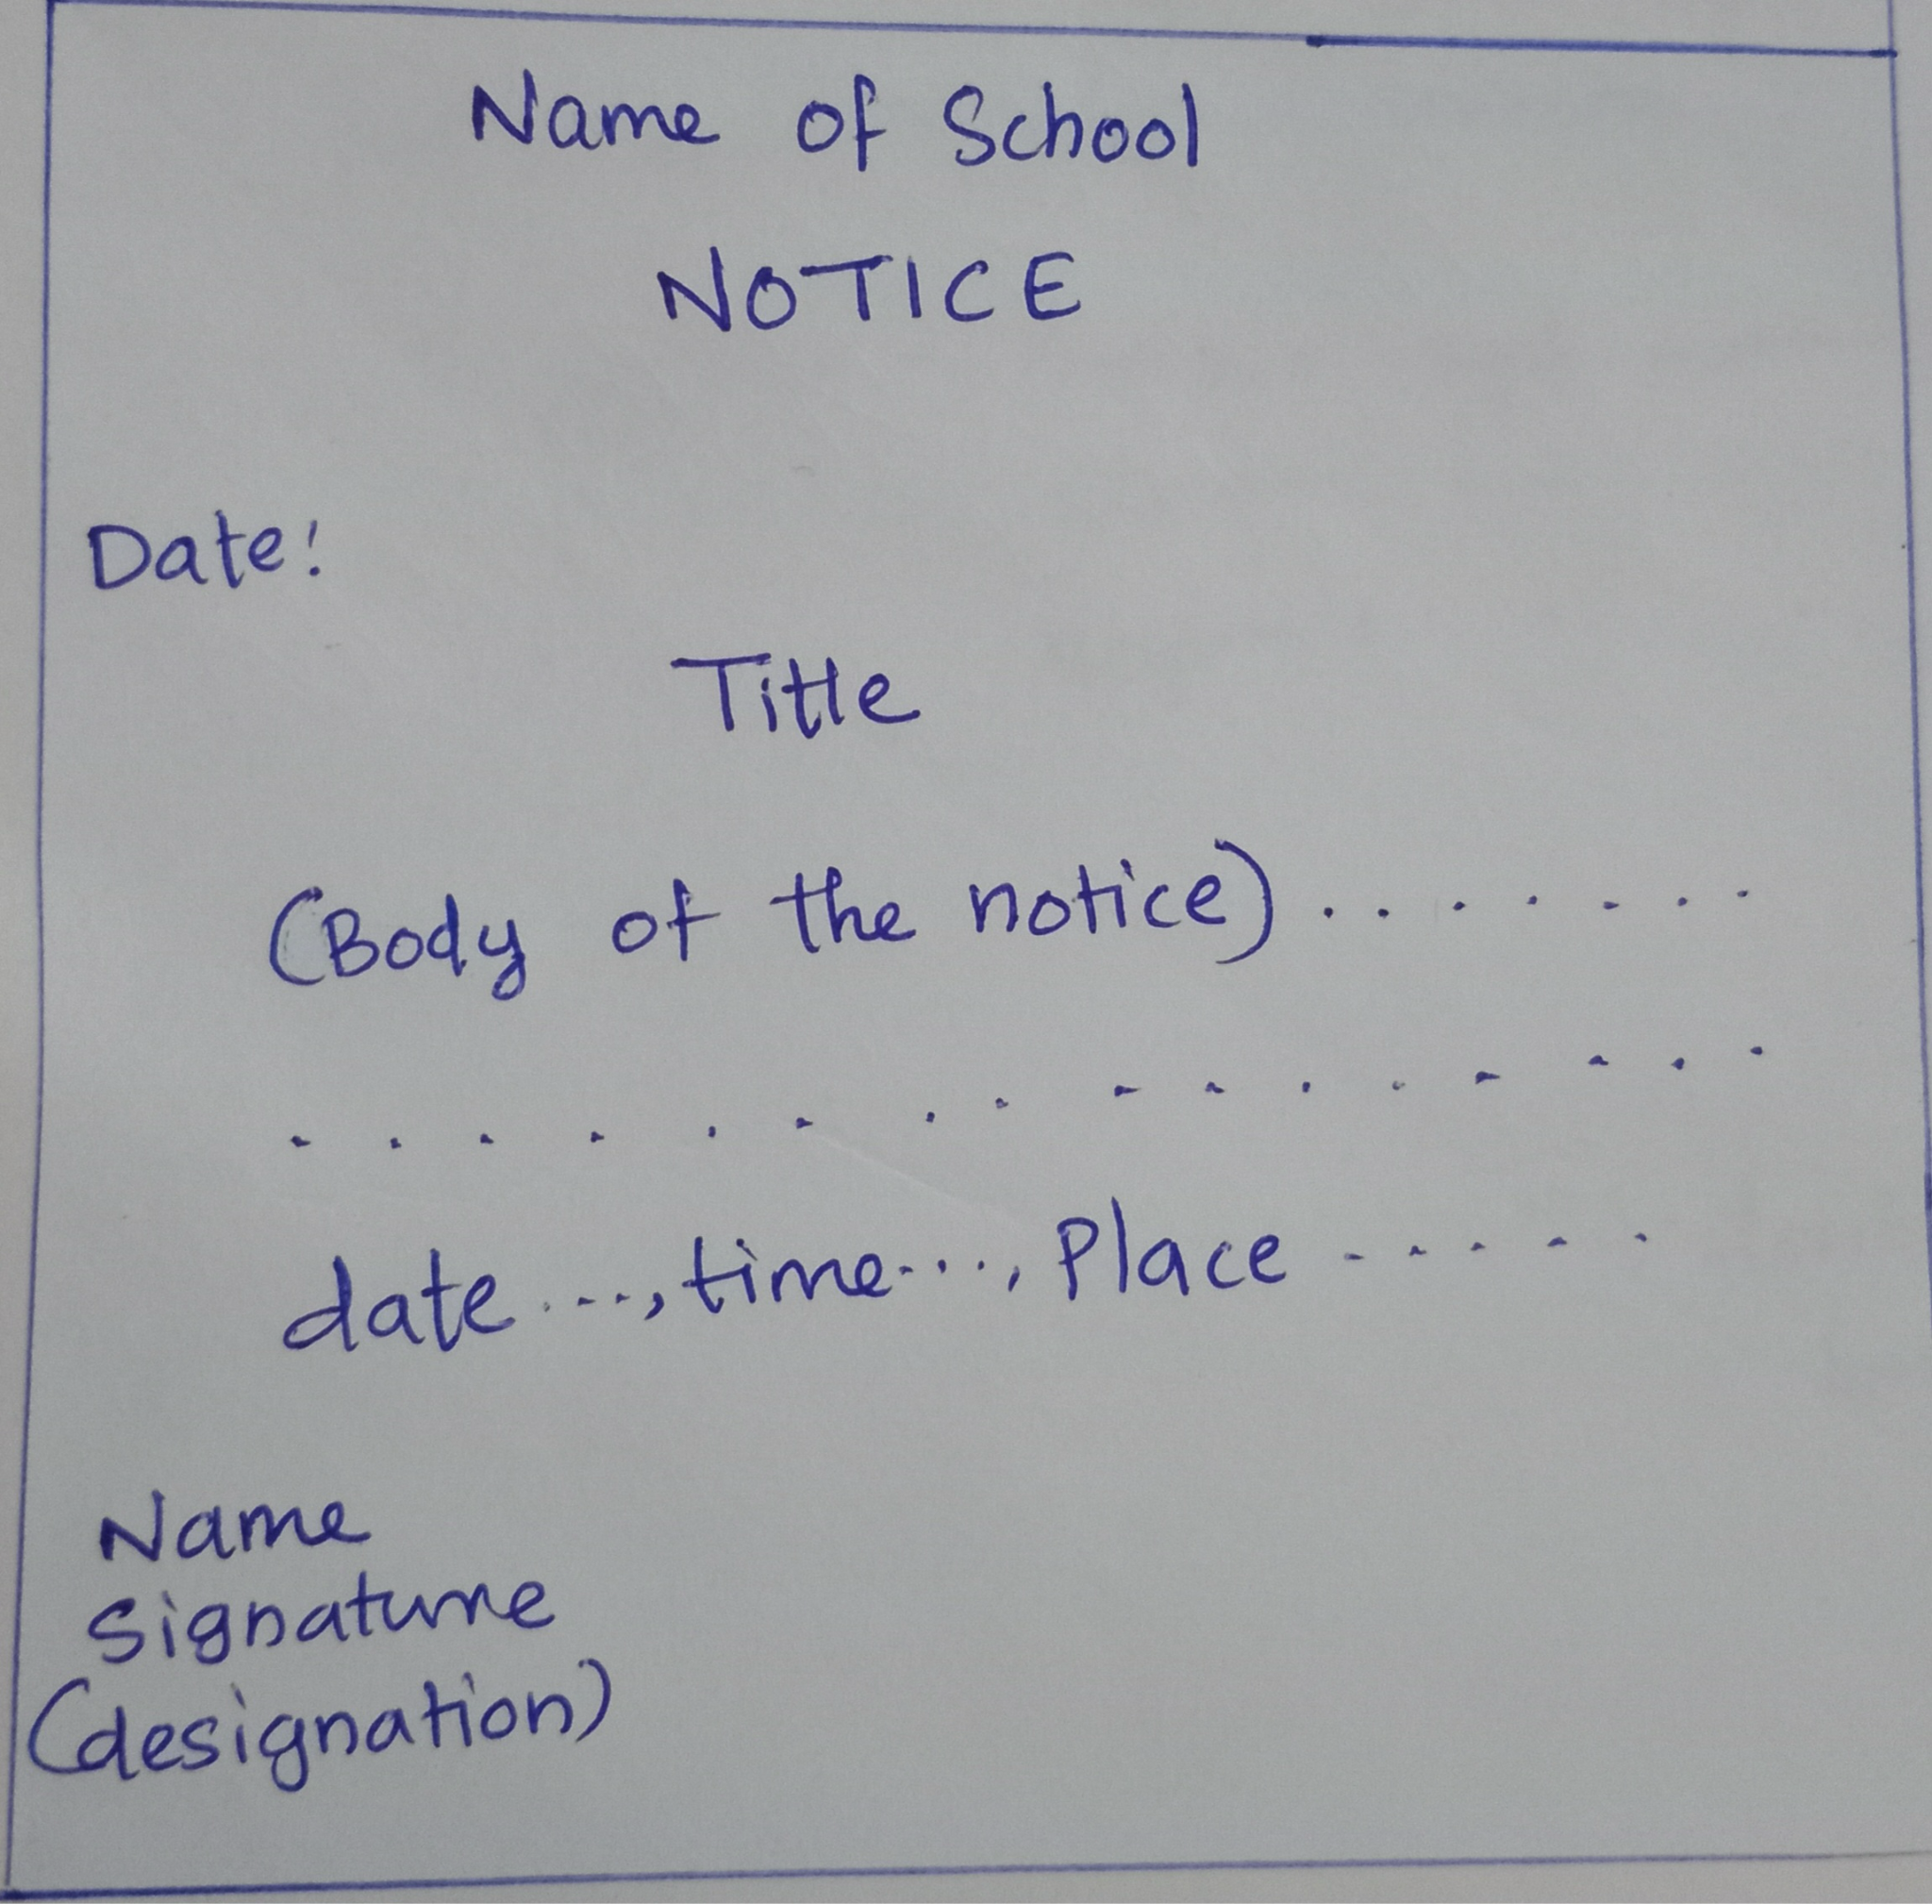 Name of School
NOTICE
Date:
Title
(Body of the notice).......
................
date....,time....,Place.....
Name
Signature
(designation)